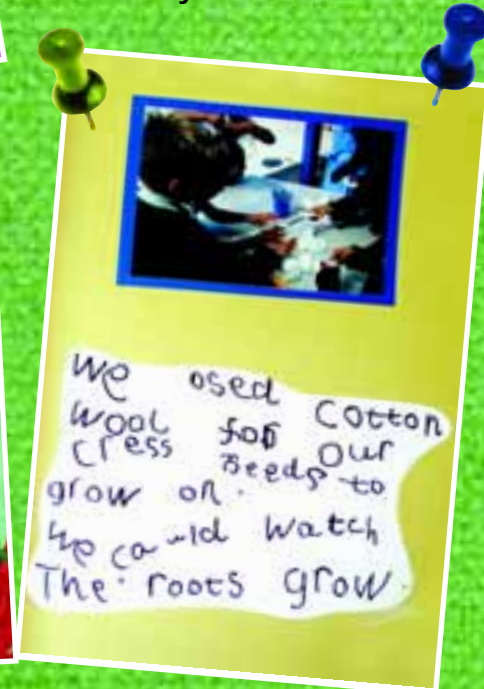 we osed cotton
wool for our
cress seeds to
grow on.
we could watch
The roots grow.